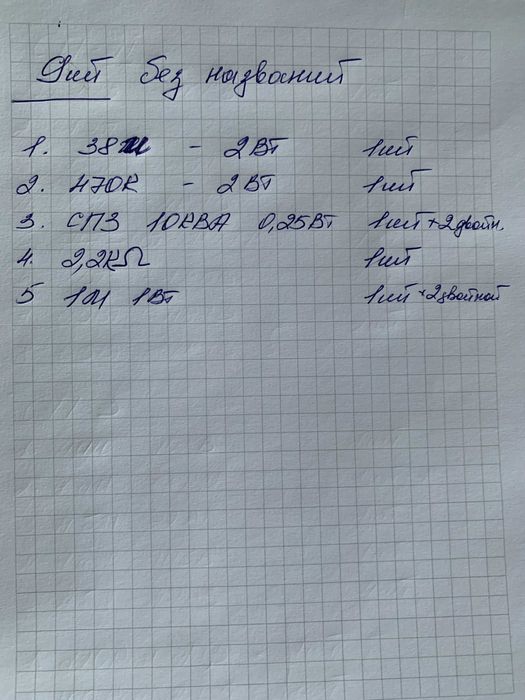 без названий
1. - 2Вт 1шт
2. 470К - 2Вт 1шт
3. СПЗ 10КВА 0,25Вт 1шт + 2двойн.
4. 2,2кΩ 1шт
5 1М 1Вт 1шт + 2двойной